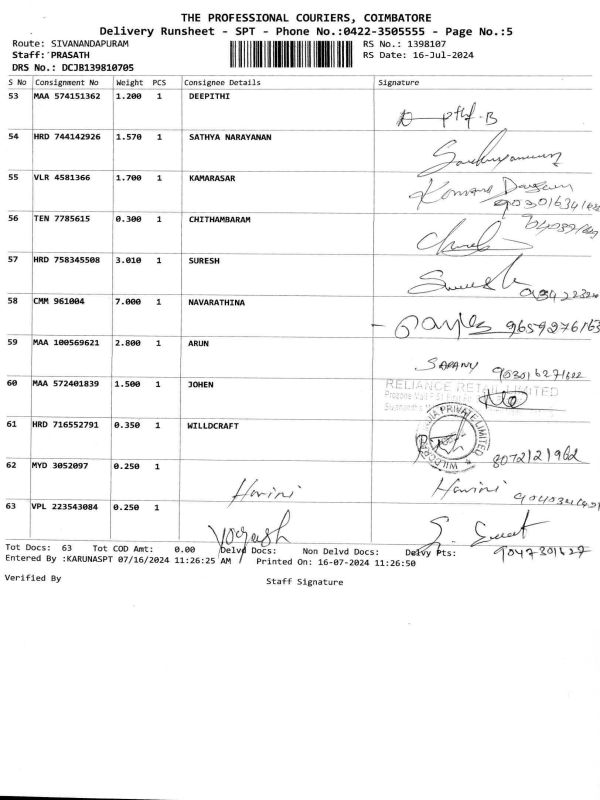 THE PROFESSIONAL COURIERS, COIMBATORE
Delivery Runsheet - SPT - Phone No.:0422-3505555 - Page No.:5
Route: SIVANANDAPURAM RS No.: 1398107
Staff: PRASATH RS Date: 16-Jul-2024
DRS No.: DCJB139810705
S No Consignment No Weight PCS Consignee Details Signature
53 MAA 574151362 1.200 1 DEEPITHI
54 HRD 744142926 1.570 1 SATHYA NARAYANAN
55 VLR 4581366 1.700 1 KAMARASAR
56 TEN 7785615 0.300 1 CHITHAMBARAM
57 HRD 758345508 3.010 1 SURESH
58 CMM 961004 7.000 1 NAVARATHINA
59 MAA 100569621 2.800 1 ARUN
60 MAA 572401839 1.500 1 JOHEN RELIANCE RETAIL LIMITED
61 HRD 716552791 0.350 1 WILLDCRAFT 8072121962
62 MYD 3052097 0.250 1 Harini Harini
63 VPL 223543084 0.250 1 Yogesh
Tot Docs: 63 Tot COD Amt: 0.00 Delvd Docs: Non Delvd Docs: Delvy Pts: 9047301627
Entered By :KARUNASPT 07/16/2024 11:26:25 AM / Printed On: 16-07-2024 11:26:50
Verified By Staff Signature